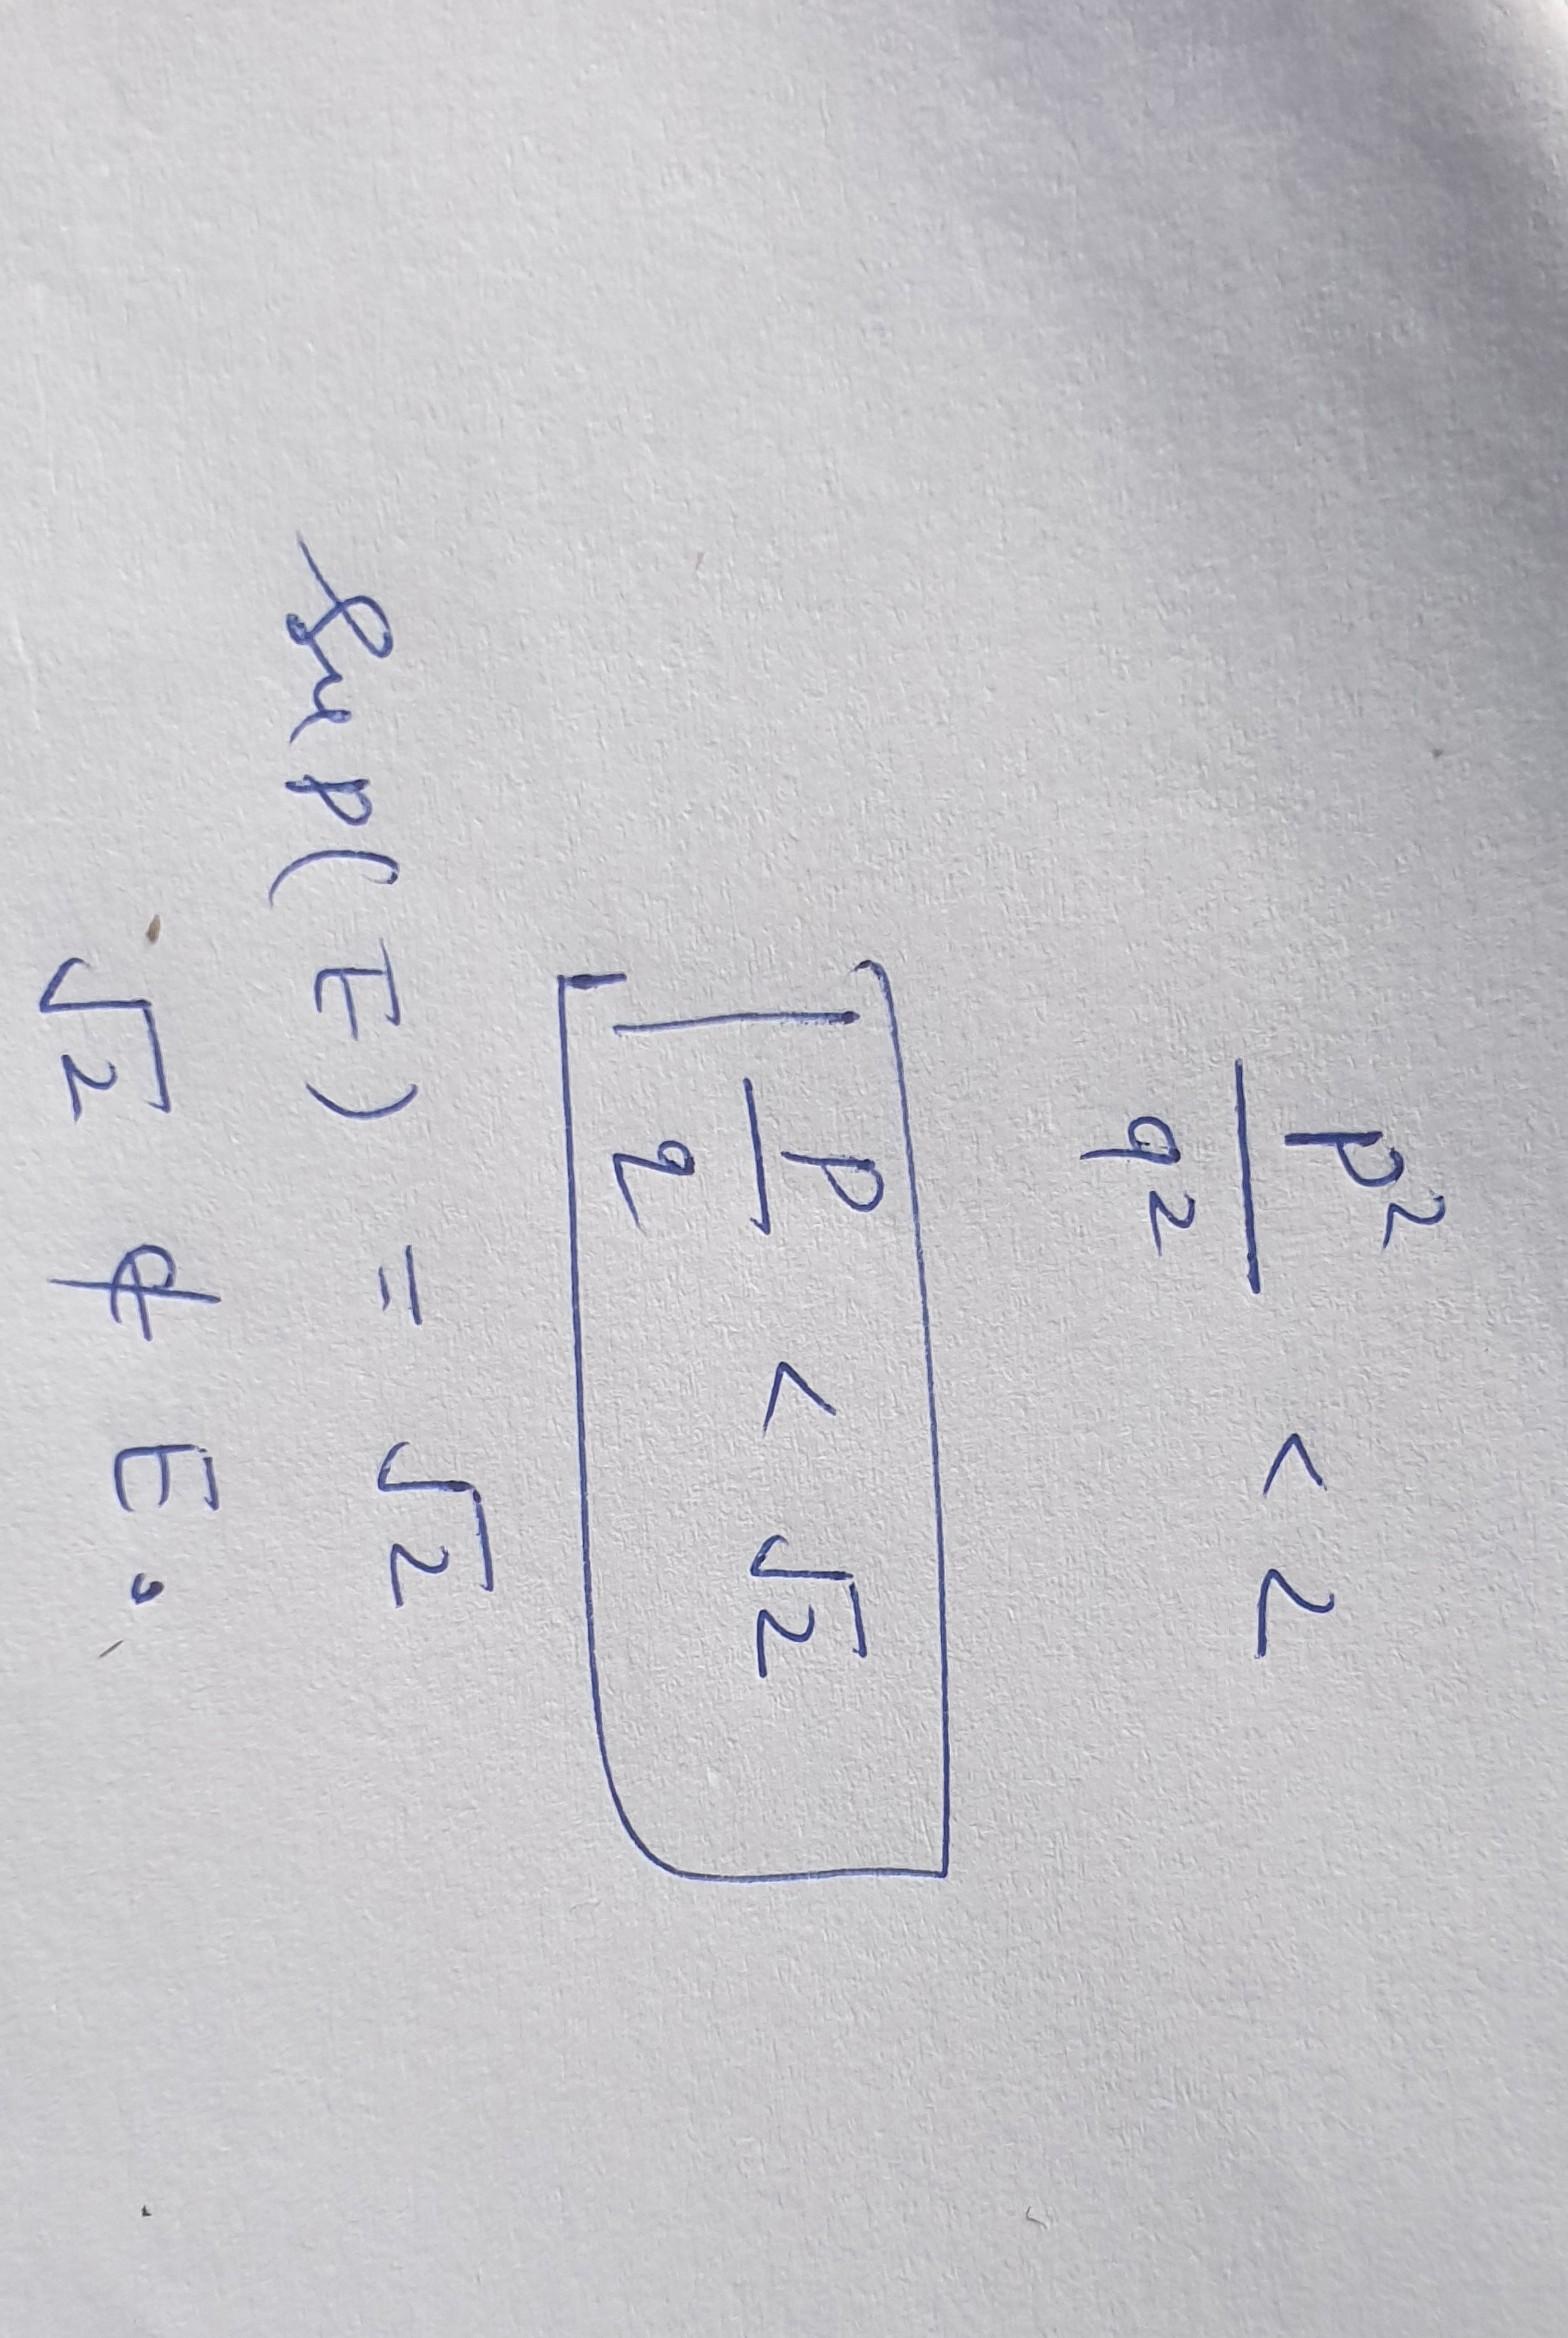 p²/q² < 2
| p/q < √2
Sup(E) = √2
√2 ∉ E.